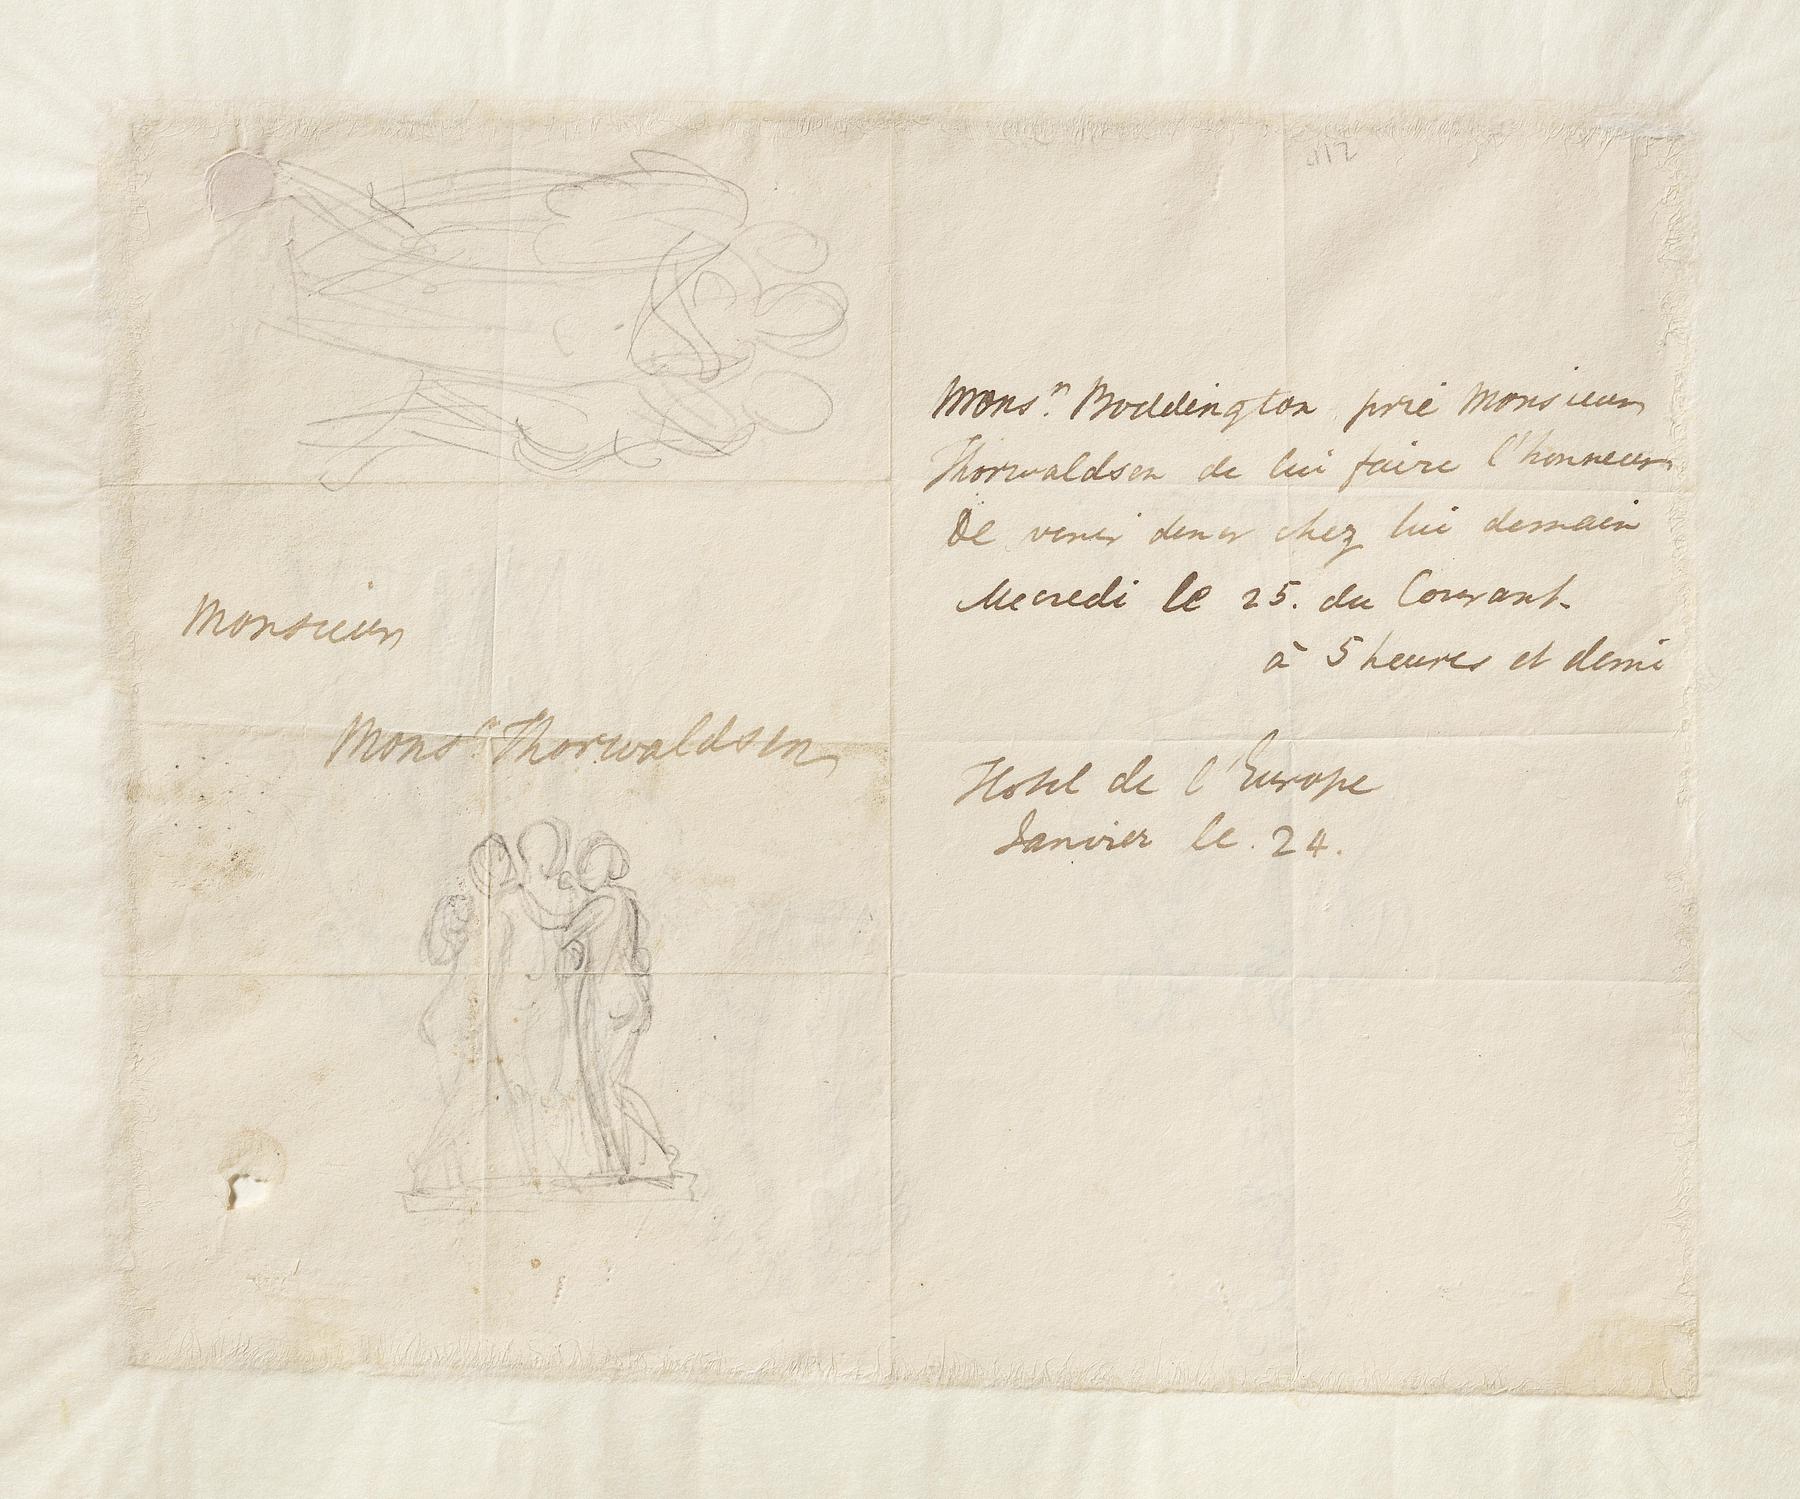 Monsieur
Monsr Thorwaldsen
Monsr. Boddington prie Monsieur
Thorwaldsen de lui faire l'honneur
De venir diner chez lui demain
Mecredi le 25. du Courant.
à 5 heures et demi
Hotel de l'Europe
Janvier le. 24.